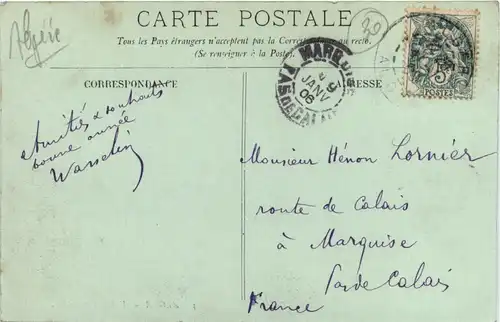 Algérie
20
CARTE POSTALE
Tous les Pays étrangers n'acceptent pas la Correspondance au recto.
(Se renseigner à la Poste)
CORRESPONDANCE
ADRESSE
MARQUISE
9
JANV
06
PAS DE CALAIS
5c
POSTES
Amitiés & souhaits
bonne année
Wasselin
Monsieur Hénon Lornier
route de Calais
à Marquise
Pas de Calais
France